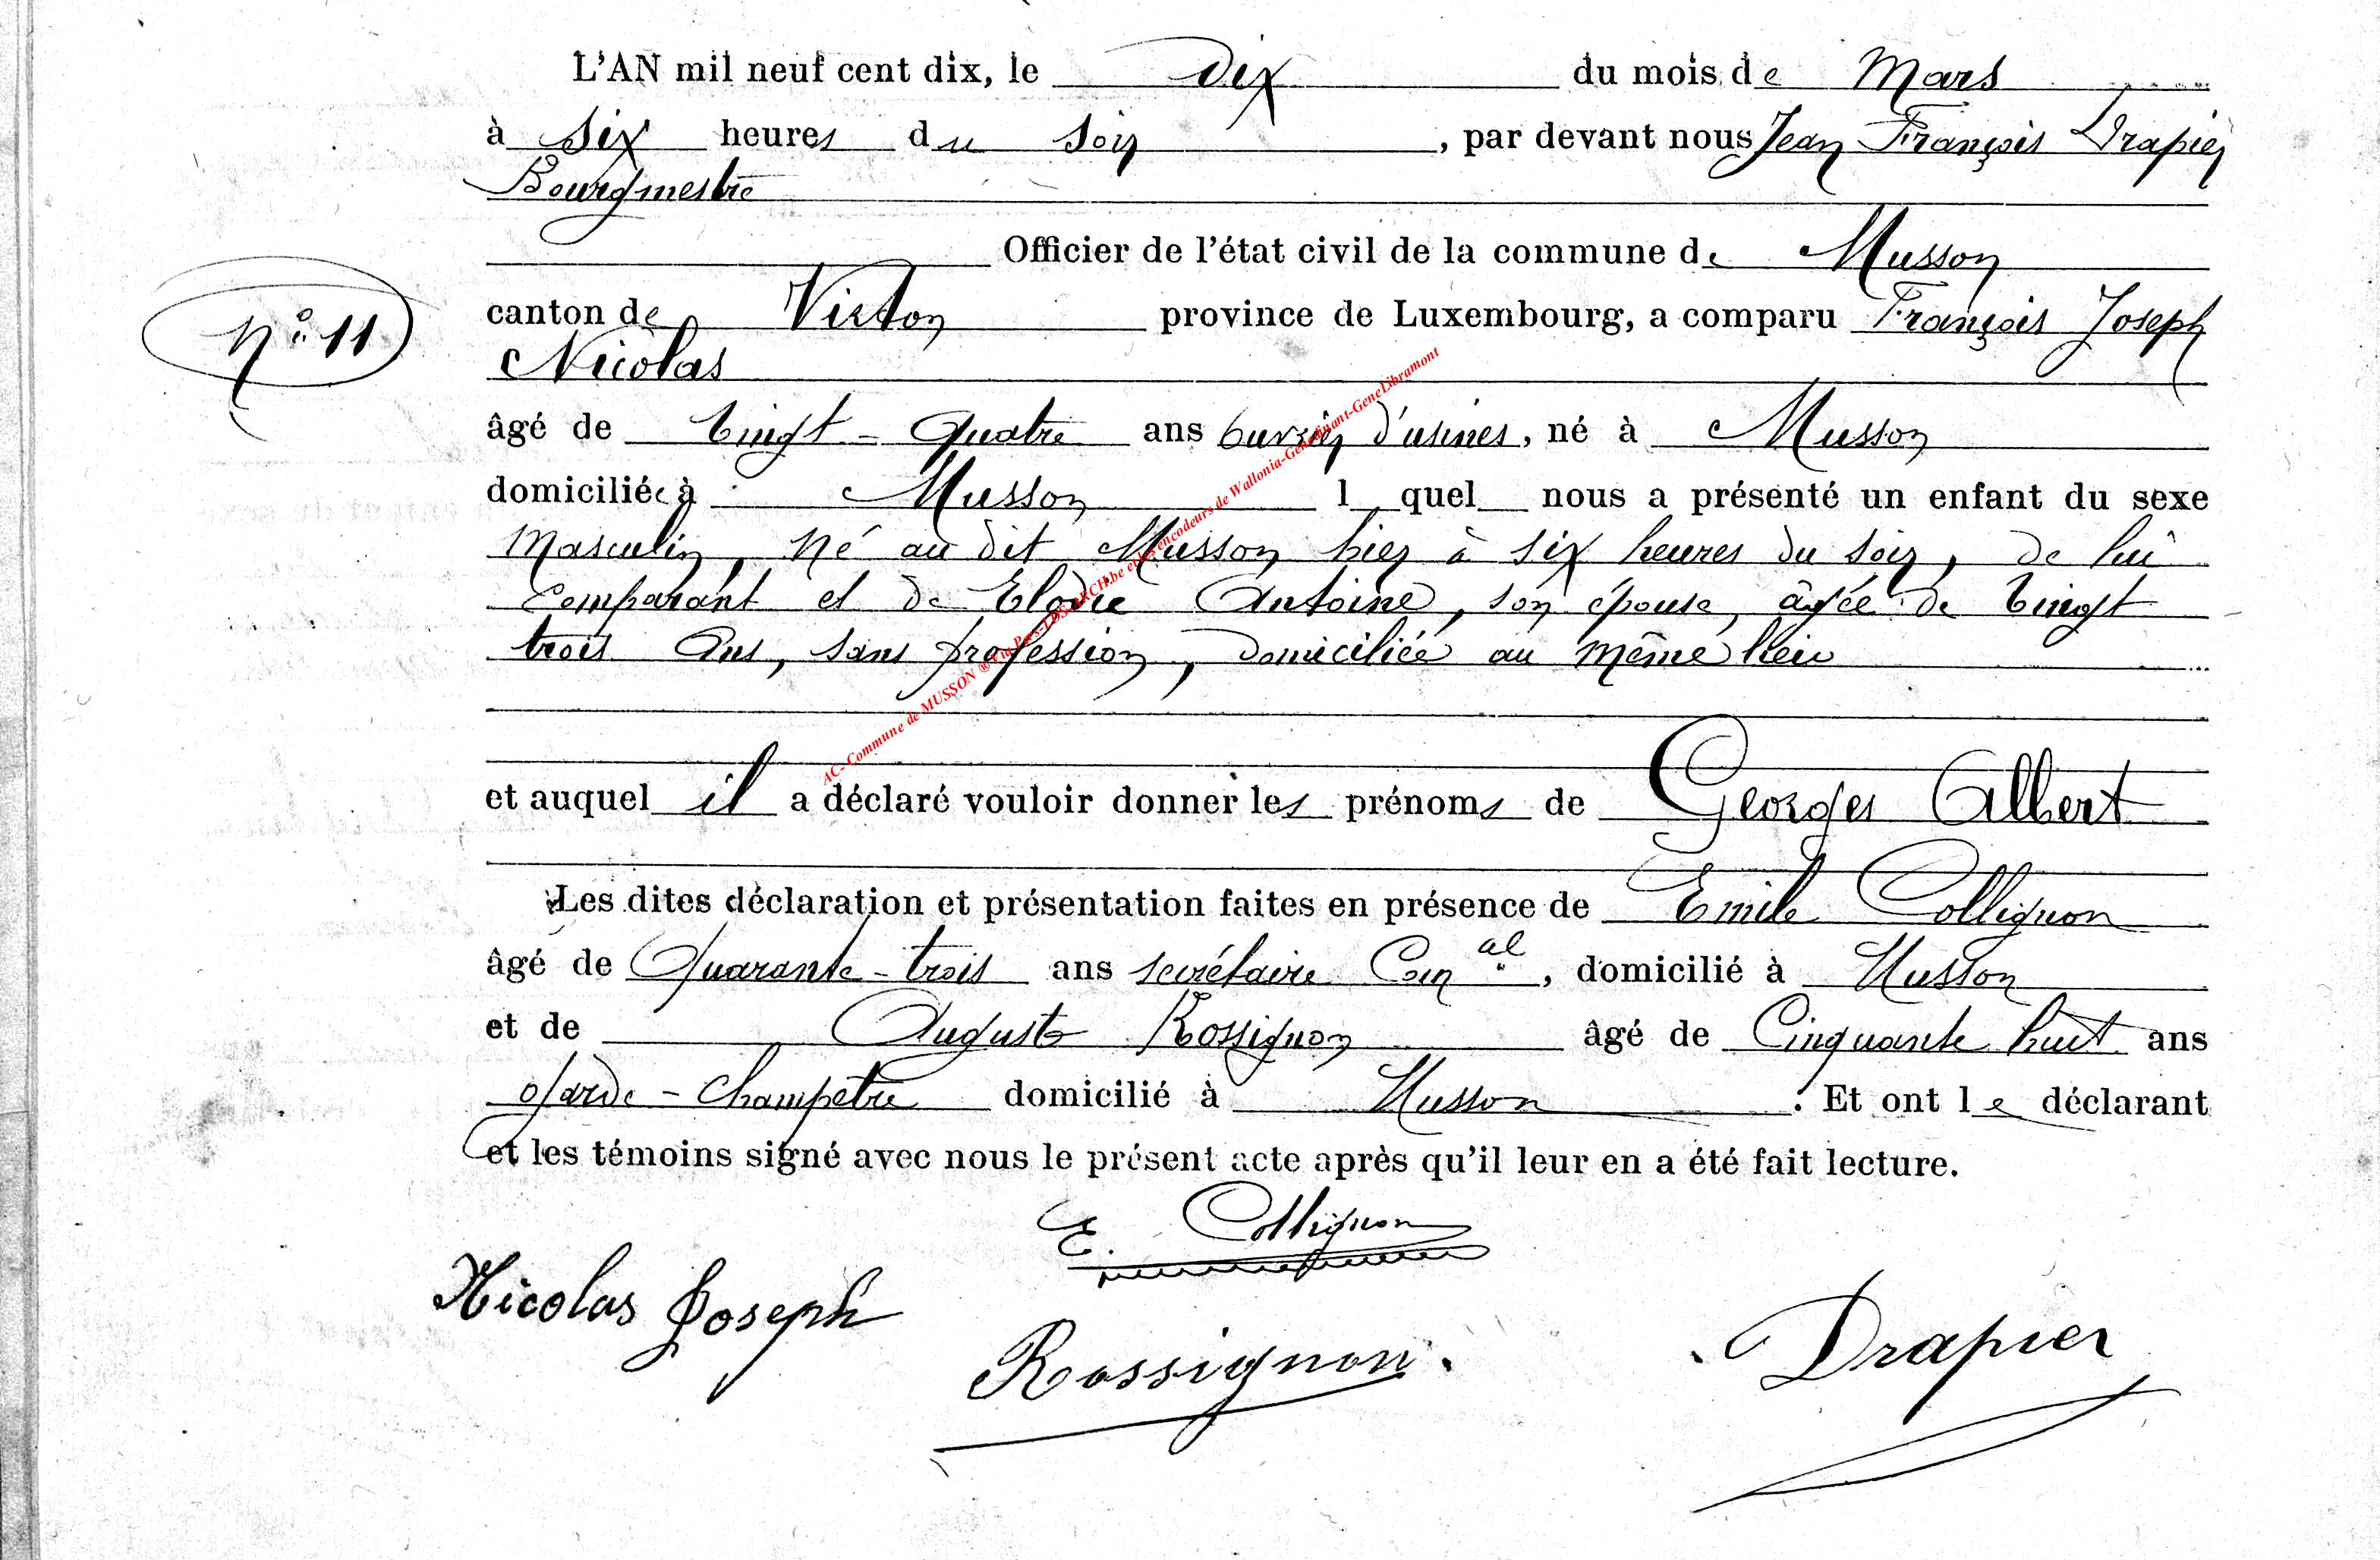 L'AN mil neuf cent dix, le dix du mois de Mars
à six heures du soir, par devant nous Jean François Drapier
Bourgmestre
Officier de l'état civil de la commune de Musson
N° 11
canton de Virton province de Luxembourg, a comparu François Joseph
Nicolas
âgé de vingt-quatre ans ouvrier d'usines, né à Musson
domicilié à Musson lequel nous a présenté un enfant du sexe
Masculin, né au dit Musson hier à six heures du soir, de lui
comparant et de Elodie Antoine, son épouse, âgée de vingt
trois ans, sans profession, domiciliée au même lieu
AC-Commune de MUSSON ® Via Pars-LDS-ARCH.be et les encodeurs de Wallonia-Genedinant-GeneLibramont
et auquel il a déclaré vouloir donner les prénoms de Georges Albert
Les dites déclaration et présentation faites en présence de Emile Collignon
âgé de Quarante-trois ans secrétaire Com al, domicilié à Musson
et de Auguste Rossignon âgé de Cinquante huit ans
Garde-Champêtre domicilié à Musson. Et ont le déclarant
et les témoins signé avec nous le présent acte après qu'il leur en a été fait lecture.
E. Collignon
Nicolas Joseph
Rossignon.
Drapier